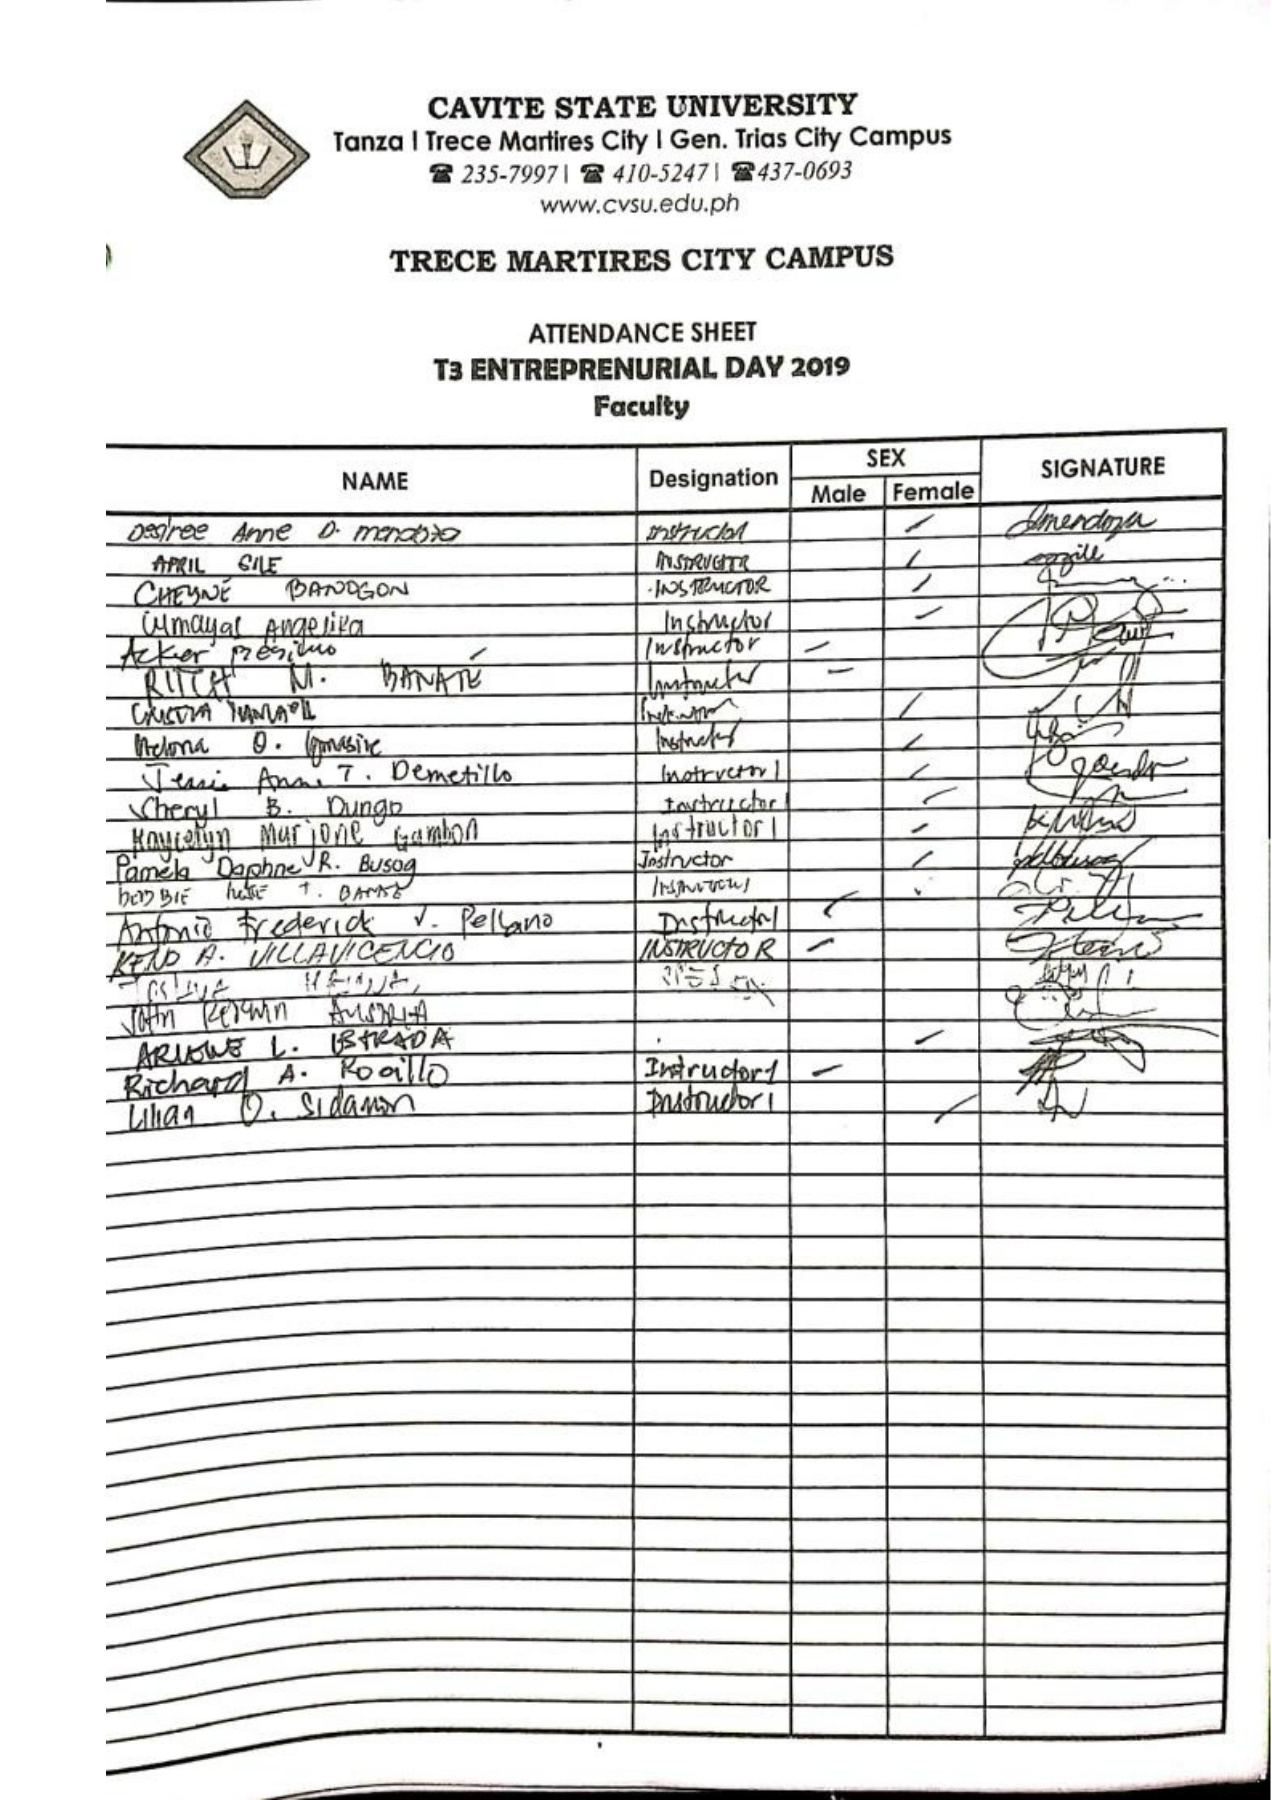 CAVITE STATE UNIVERSITY
Tanza | Trece Martires City | Gen. Trias City Campus
☎ 235-7997 | ☎ 410-5247 | ☎ 437-0693
www.cvsu.edu.ph
TRECE MARTIRES CITY CAMPUS
ATTENDANCE SHEET
T3 ENTREPRENURIAL DAY 2019
Faculty
NAME Designation SEX SIGNATURE
Male Female
Desiree Anne D. Mendoza Instructor
APRIL GILE INSTRUCTOR
CHEYNE BANOGON INSTRUCTOR
Umayas Angelika Instructor
Acker Instructor
RITCH M. BANATE Instructor
Instructor
O. Instructor
Jessie Anne T. Demetillo Instructor 1
Cheryl B. Dungo Instructor 1
Kaycelyn Marjone Gambon Instructor 1
Pamela Daphne R. Busog Instructor
T.
Antonio Frederick V. Pellano Instructor 1
A. VILLAVICENCIO INSTRUCTOR
John Kerwin AUSTRIA
L. ESTRADA
Richard A. Rocillo Intructor 1
Lilian O. Instructor 1